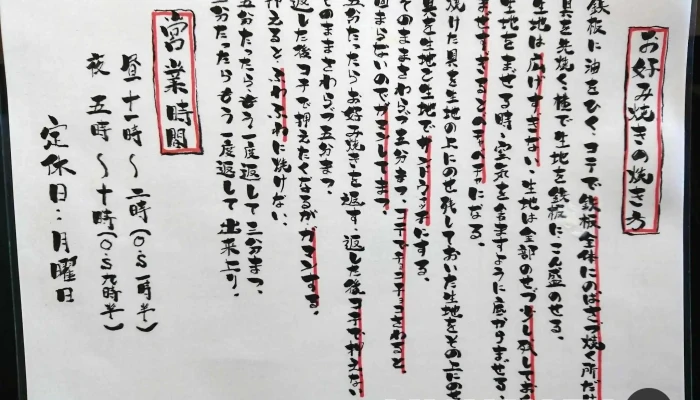 お好み焼きの焼き方
鉄板に油をひく、コテで鉄板全体にのばさず焼く所だけ
具を先焼く、極で生地を鉄板にこん盛のせる。
生地は広げすぎない、生地は全部のせづ少し残しておく
生地をまぜる時、空気を含ますように底からまぜる、
ませすぎるとのものもになる。
焼けた具を生地の上にのせ残しておいた生地をその上にのせ
具を生地と生地でサンドウッチにする。
そのままさわらづ五分まつ、コテでチョコチョコさわると
固まらないのでガマンしてまつ。
五分たったらお好み焼きを返す、返した後コテで押えない
そのままさわらづ五分まつ。
返した後コテで押えたくなるがガマンする。
押えると、ふわふわに焼けない。
五分たったらもう一度返して三分まつ、
三分たったらもう一度返して出来上り。
営業時間
昼十一時〜二時(o,s一時半)
夜五時〜十時(o,s九時半)
定休日:月曜日